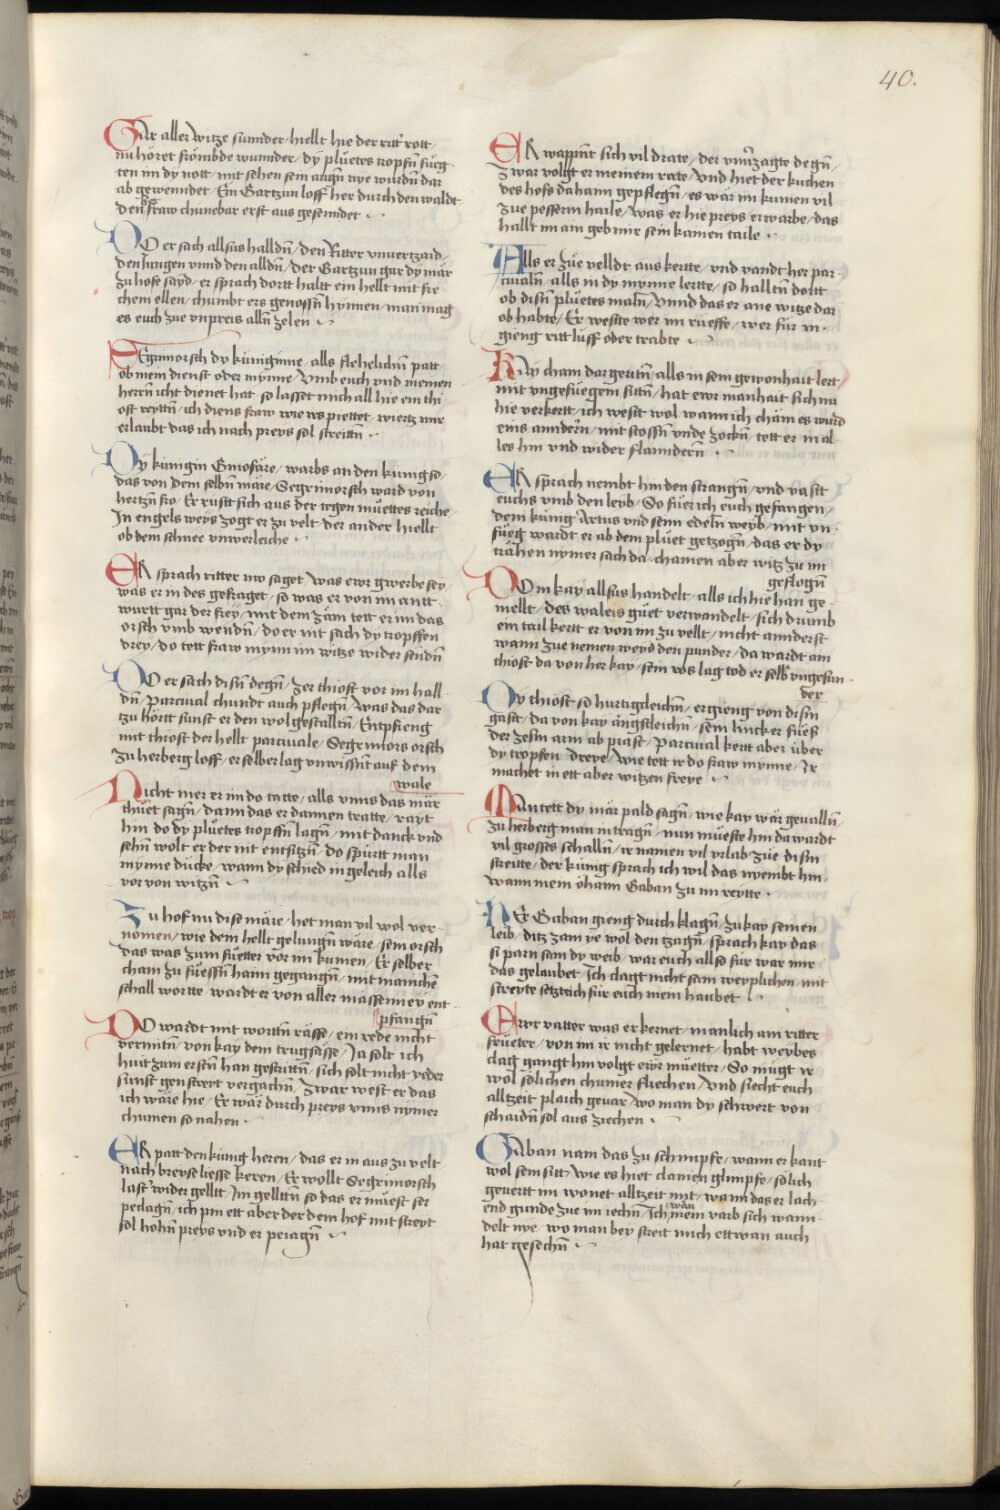 40.
Gar aller witze sunnder / hiellt hie der ritt' rott /
nu höret frömbde wunnder / dy pluetes tropfn̄ füeg-
ten im dy nott / mit sehen sein augn̄ nye wurdn̄ dar
ab gewenndet / Ein Gartzun loff her durch den waldt
den fraw chunebar erst aus gesenndet
DO er sach allsus halldn̄ / den Ritter vnuertzaid /
den Jungen vnnd den alldn̄ / der Gartzun gar dy mär
zu hofe sayd / er sprach dortt haltt ein hellt mit fre-
chem ellen / chumbt ers genossn̄ hynnen / man mag
es euch zue vnpreis alln̄ zelen
SEgrimorsch dy künigynne / alls flehelichn̄ patt
ob mein dienst oder mynne / vmb euch vnd meinen
herrn̄ icht dienet hat / so lasset mich all hie ein thi-
ost reyttn̄ / ich diens fraw wie ws piettet / wiertz mir
erlaubt das ich nach preys sol streittn̄
DY kunigin Ginofäre / warbs an den künig so /
das von dem selbn̄ märe / Segrimorsch ward von
hertzn̄ fro / Er rustt sich aus der regen müettes reiche /
In engels weys zogt er zu velt / der ander hiellt
ob dem schnee vnwerleiche
ER sprach ritter nw saget / was ewr gwerbe sey /
was er in des gefraget / so was er von im antt-
wurtt gar der frey / mit dem zäm tett er im das
orsch vmb wendn̄ / do er nit sach dy tropffen
drey / do tett fraw mynn im witze wider sendn̄
DO er sach disn̄ degn̄ / zer thiost vor im hall-
dn̄ / Parciual chundt auch pflegn̄ / was das dar
tzu hörtt sunst er den wolgestalltn̄ / Entpfieng
mit thiost der hellt parciuale / Segrimors orsch
zu herberg loff / er selber lag vnwissn̄t auf dem
wale
Nicht mer er im do tatte / alls vnns das mär
thuet sagn̄ / dann das er dannen tratte / rayt
hin do dy pluetes tropffn̄ lagn̄ / mit danck vnd
sehn̄ wolt er der nit entsitzn̄ / do spürtt man
mynne dücke / wann dy schied in geleich alls
vor von witzn̄
Zu hof nu dise märe / het man vil wol ver-
nomen / wie dem hellt gelungn̄ wäre / sein orsch
das was zum fuetter vor im kumen / Er selber
cham zu füessn̄ haim gegangn̄ / mit manichen
schall wortte / wardt er von aller massenney ent-
pfangn̄
DO wardt mit worttn̄ rässe / ein rede nicht
vermitn̄ / von kay dem trugsässe / Ja solt ich
huit zum erstn̄ han gestrittn̄ / sich solt nicht yeder
sunst gen streyt vergachn̄ / zwar west er das
ich wäre hie / Er wär durch preys vnns nymer
chumen so nahen
ER patt den künig heren / das er in aus zu velt
nach breyse liesse keren / Er wollt Segrimorsch
last' wider gellt / Im gelltn̄ so das er müest ser
peclagn̄ / ich pin ett aber der dem hof mit streyt
sol hohn̄ preys vnd er peiagn̄
ER wappn̄t sich vil drate / der vnu'zagte degn̄ /
zwar volgt er meinem rate / vnd hiet der kuchen
des hofs dahaim gepflegn̄ / es wär im kumen vil
zue pesserm haile / was er hie preys erwarbe / das
hallt im am geb mir sein kainen taile
Alls er zue velldt aus kertte / vnd vandt her par-
ciualn̄ / alls in dy mynne lertte / so halltn̄ dortt
ob disn̄ pluetes maln̄ / vnnd das er ane witze dar
ob habte / Er westte wer im rüeffe / wer für in
gieng ritt luff oder trabte
KAy cham dar geritn̄ / alls in sein gewonhait lert /
mit vngefüegem sittn̄ / hat ewr manhait sich nu
hie verkertt / ich westt wol wann ich chäm es wurd
eins anndern̄ / mit stossn̄ vnde zockn̄ / tett er in al-
les hin vnd wider flanndern̄
ER sprach nembt hin den strangn̄ / vnd vastt
euchs vmb den leyb / So fuer ich euch gefangen /
dem künig Artus vnd seim edeln weyb / mit vn-
fueg wardt er ab dem pluet getzogn̄ / das er dy
trähen nymer sach da / chamen aber witz zu im
geflogn̄
DO in kay allsus handelt / alls ich hie han ge-
mellt / des waleis güet verwandelt / sich drumb
ein tail kertt er von im zu vellt / nicht annderst
wann zue nemen weyd den punder / da wardt ain
thiost da von her kay / sein ros lag tod er selb' vngesun-
der
DY thiost so hurtigleichn̄ / ergieng von disn̄
gästt / da von kay ängstleichn̄ / sein lincker fuess
der zesm arm ab präst / Parciual kertt aber über
dy tropfen dreye / wie tett ir do fraw mynne / Ir
machet in ett aber witzen freye
MAn tett dy mär pald sagn̄ / wie kay wär geualln̄ /
zu herberg man in tragn̄ / nun müeste hin da wardt
vil grosses schalln̄ / ir namen vil vrlab zue disn̄
streitte / der künig sprach ich wil das nyembt hin
wann mein öhaim Gaban zu im reytte
DEr Gaban gieng durch klagn̄ / zu kay seinen
leib / ditz zam ye wol den tzagn̄ / sprach kay das
si parn sam dy weib / war euch allso für war mir
das gelaubet / Ich clagt nicht sam weyplichen / mit
streyte setzt ich für euch mein haubet
Ewr vatter was er kernet / manlich ain ritter
frueter / von im ir nicht gelernet / habt weybes
clag gangt hin volgt ewr müetter / So mügt ir
wol solichen chumer fliechen / vnd siecht euch
alltzeit plaich geuar / wo man dy schwert von
schaidn̄ sol aus ziechen
GAban nam das zu schimpfe / wann er kant
wol sein sitt / wie es hiet clainen glimpfe / solich
geuertt im wonet alltzeit mit / wann das er lach-
end gunde zue im iechn̄ / Ich wan mein varb sich wann-
delt nye / wo man bey streit mich ettwan auch
hat gesechn̄